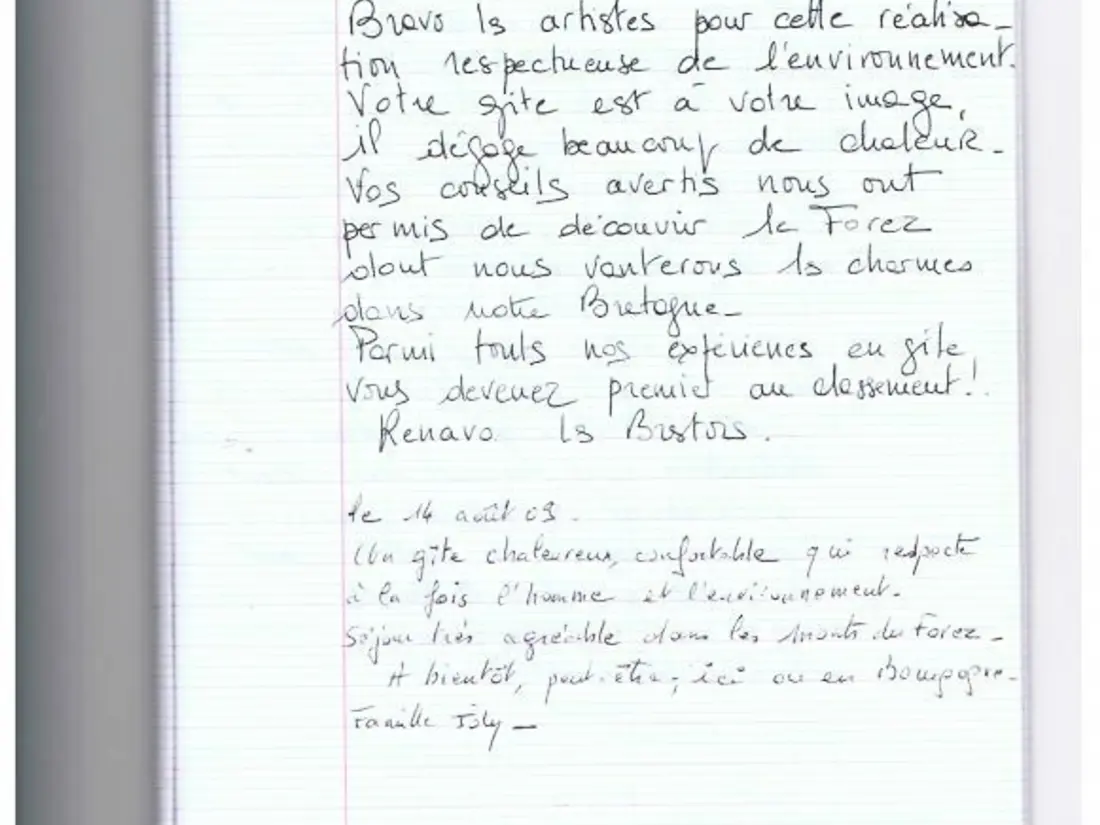 Bravo ls artistes pour cette réalisa-
tion respectueuse de l'environnement.
Votre gîte est à votre image,
il dégage beaucoup de chaleur.
Vos conseils avertis nous ont
permis de découvrir le Forez
dont nous vanterons ls charmes
dans notre Bretagne-
Parmi touts nos expériences en gîte,
vous devenez premier au classement!
ls
le 14 août 09.
Un gîte chaleureux, confortable qui respecte
à la fois l'homme et l'environnement.
Séjour très agréable dans les Monts du Forez-
A bientôt, peut-être, ici ou en Bourgogne.
Famille Joly-